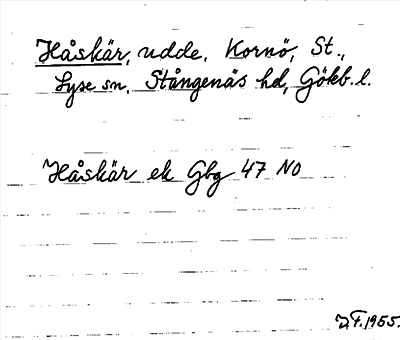 Håskär, udde, Kornö, St.,
Lyse sn, Stångenäs hd, Gökb. l.
Håskär ek Gbg 47 NO
J.F. 1955.